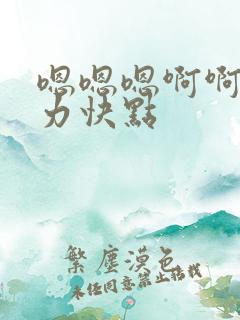 嗯嗯嗯啊啊
力快點
繁塵漠色
未经同意禁止转载